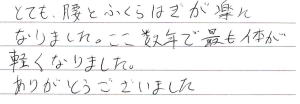 とても、腰とふくらはぎが楽に
なりました。ここ数年で最も体が
軽くなりました。
ありがとうございました